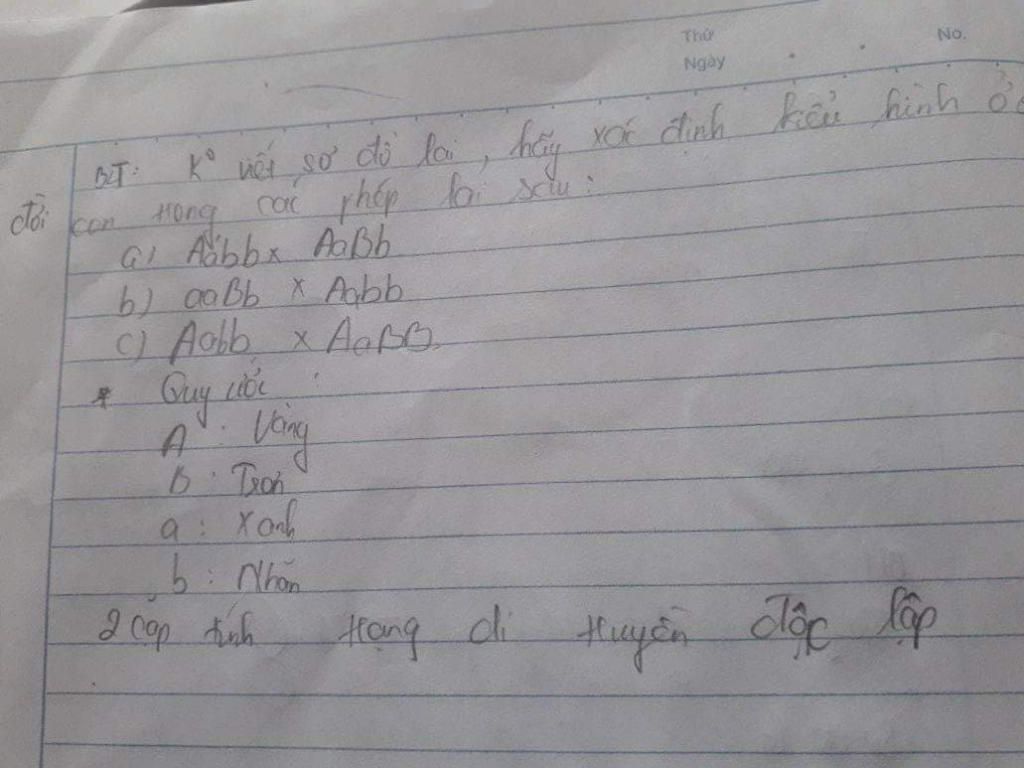 Thứ
Ngày
No.
BT: K° viết sơ đồ lai, hãy xác định kiểu hình ở
đời con trong các phép lai sau:
a) Aabb x AaBb
b) aaBb x Aabb
c) Aabb x AaBB.
* Quy ước :
A : Vàng
B : Trơn
a : Xanh
b : Nhăn
2 cặp tính trạng di truyền độc lập